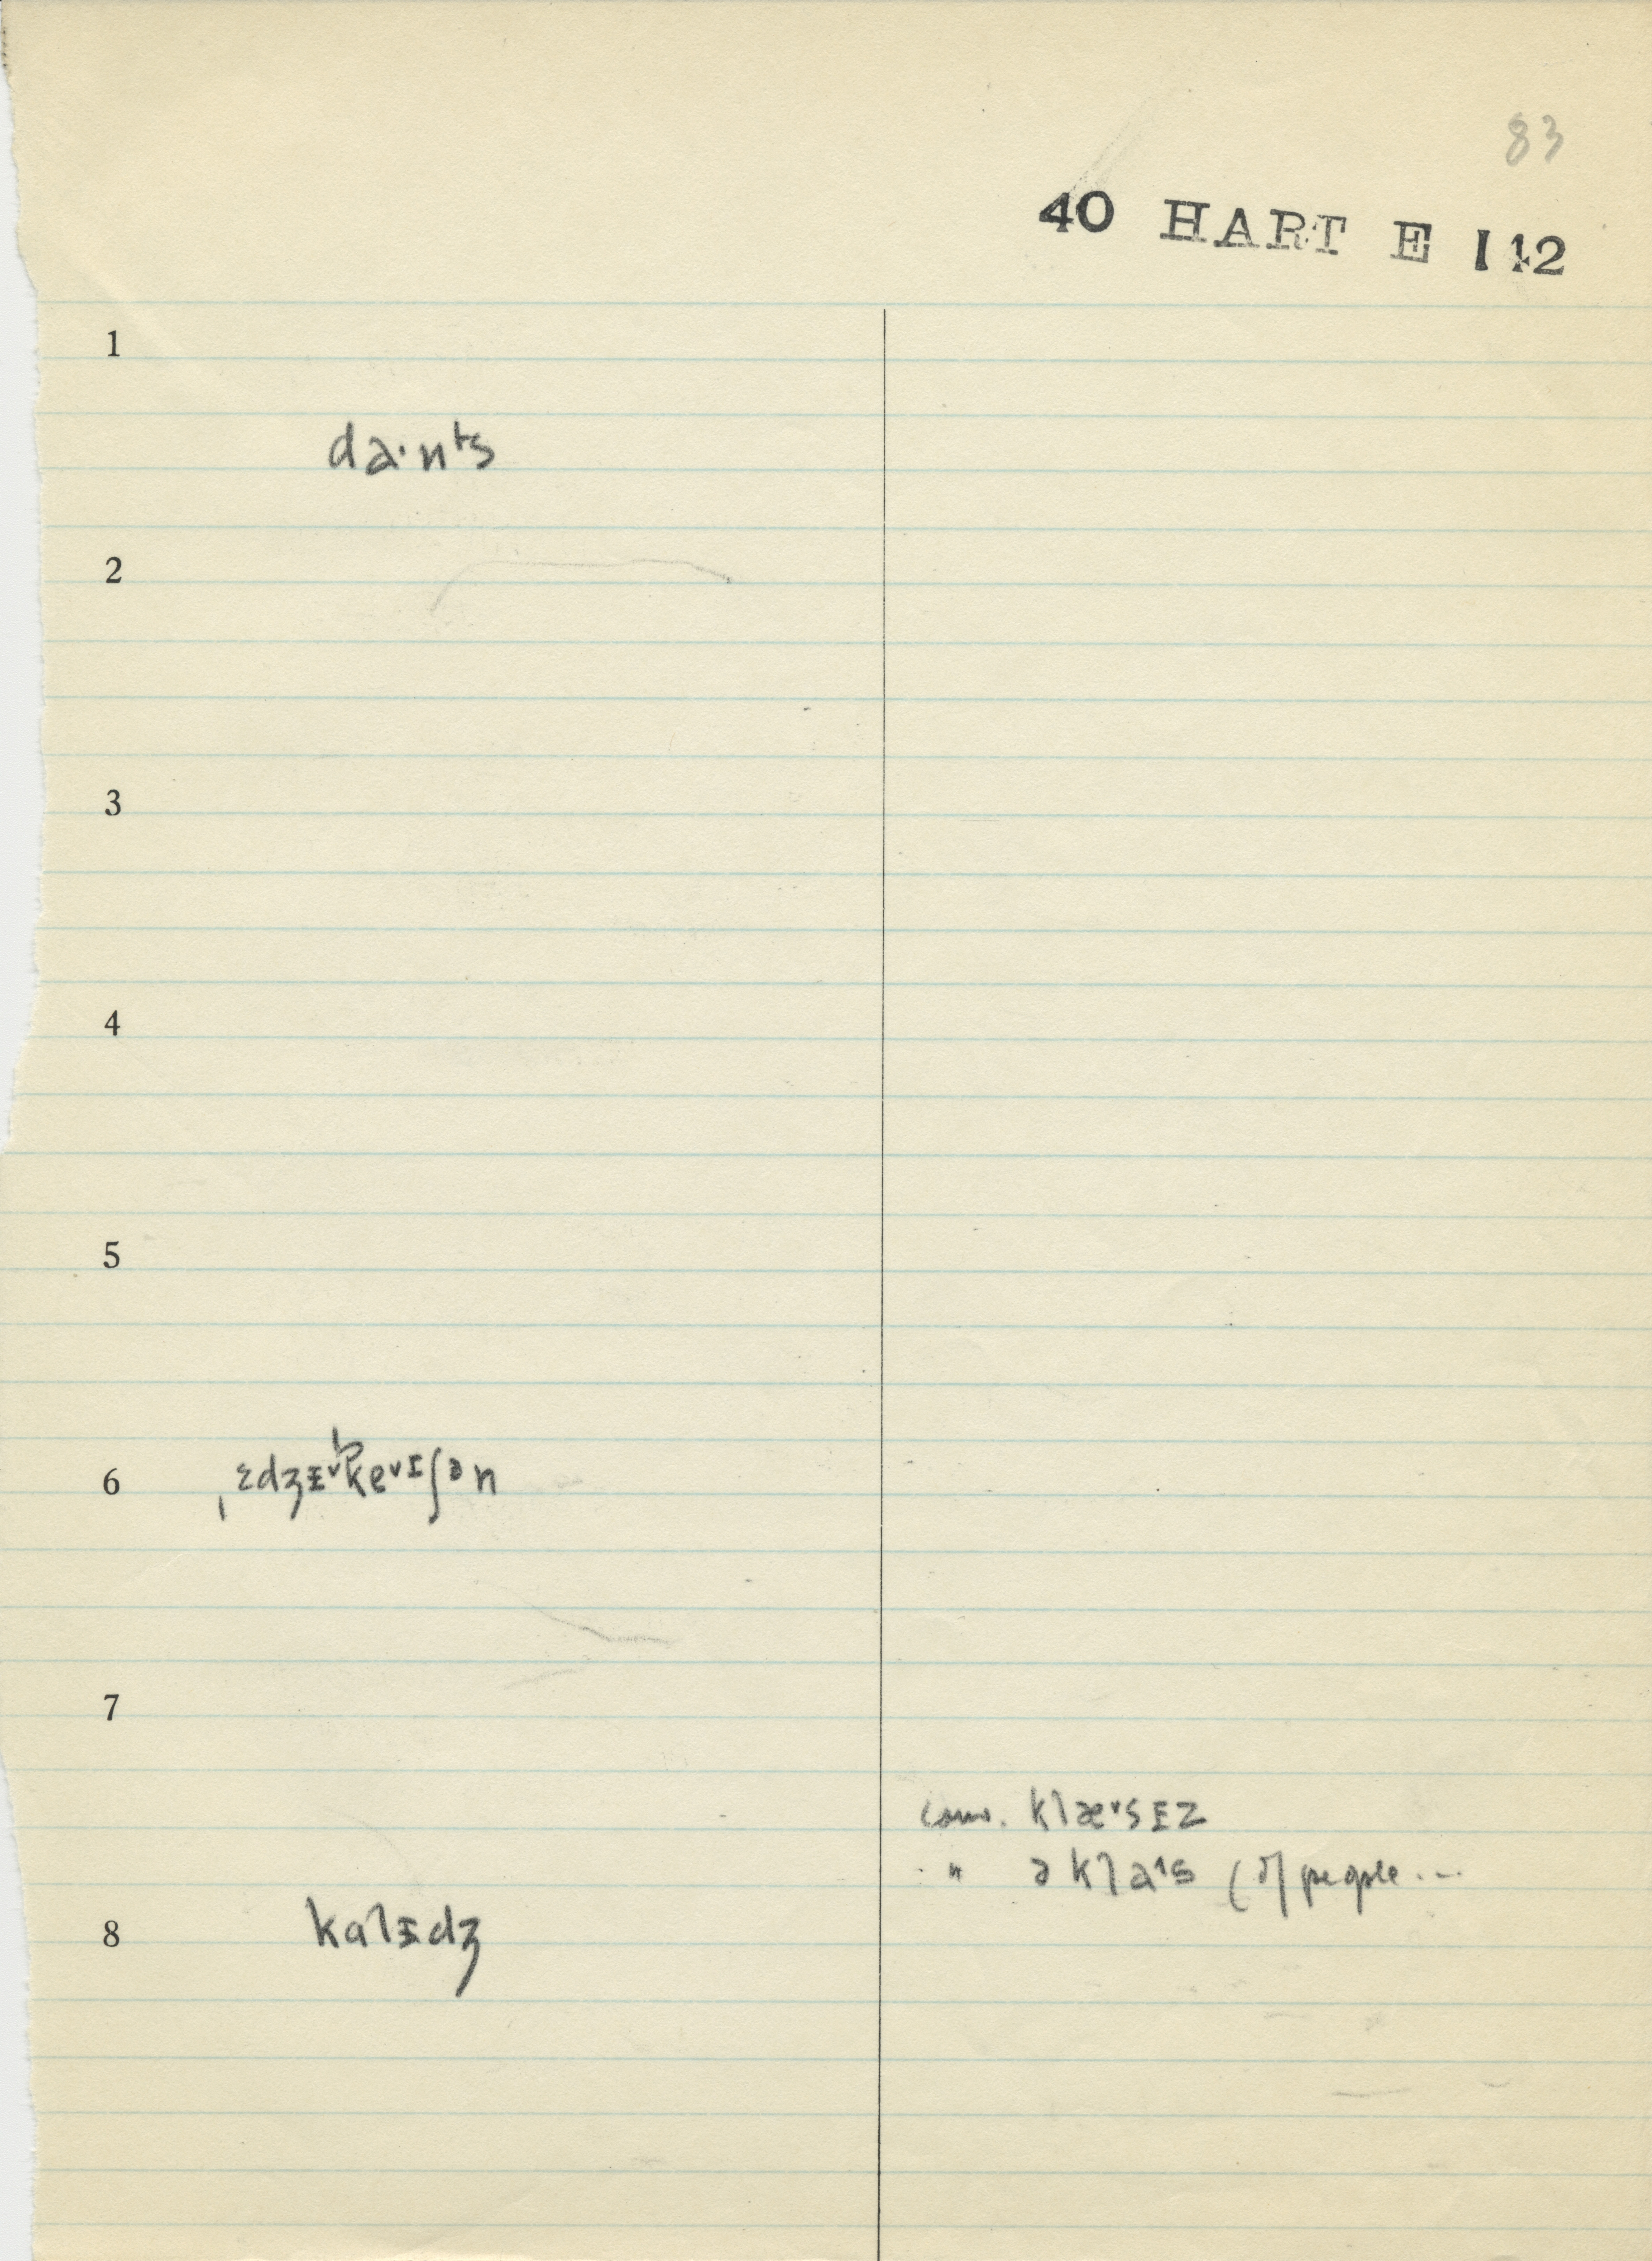 83
40 HART E 112
1
da·nᵗs
2
3
4
5
6 ˌɛdʒᵻ˅ke˅ɪʃən
7
conv. klæ˅sᵻz
" ə kla^s (of people ...
8 kalᵻdʒ